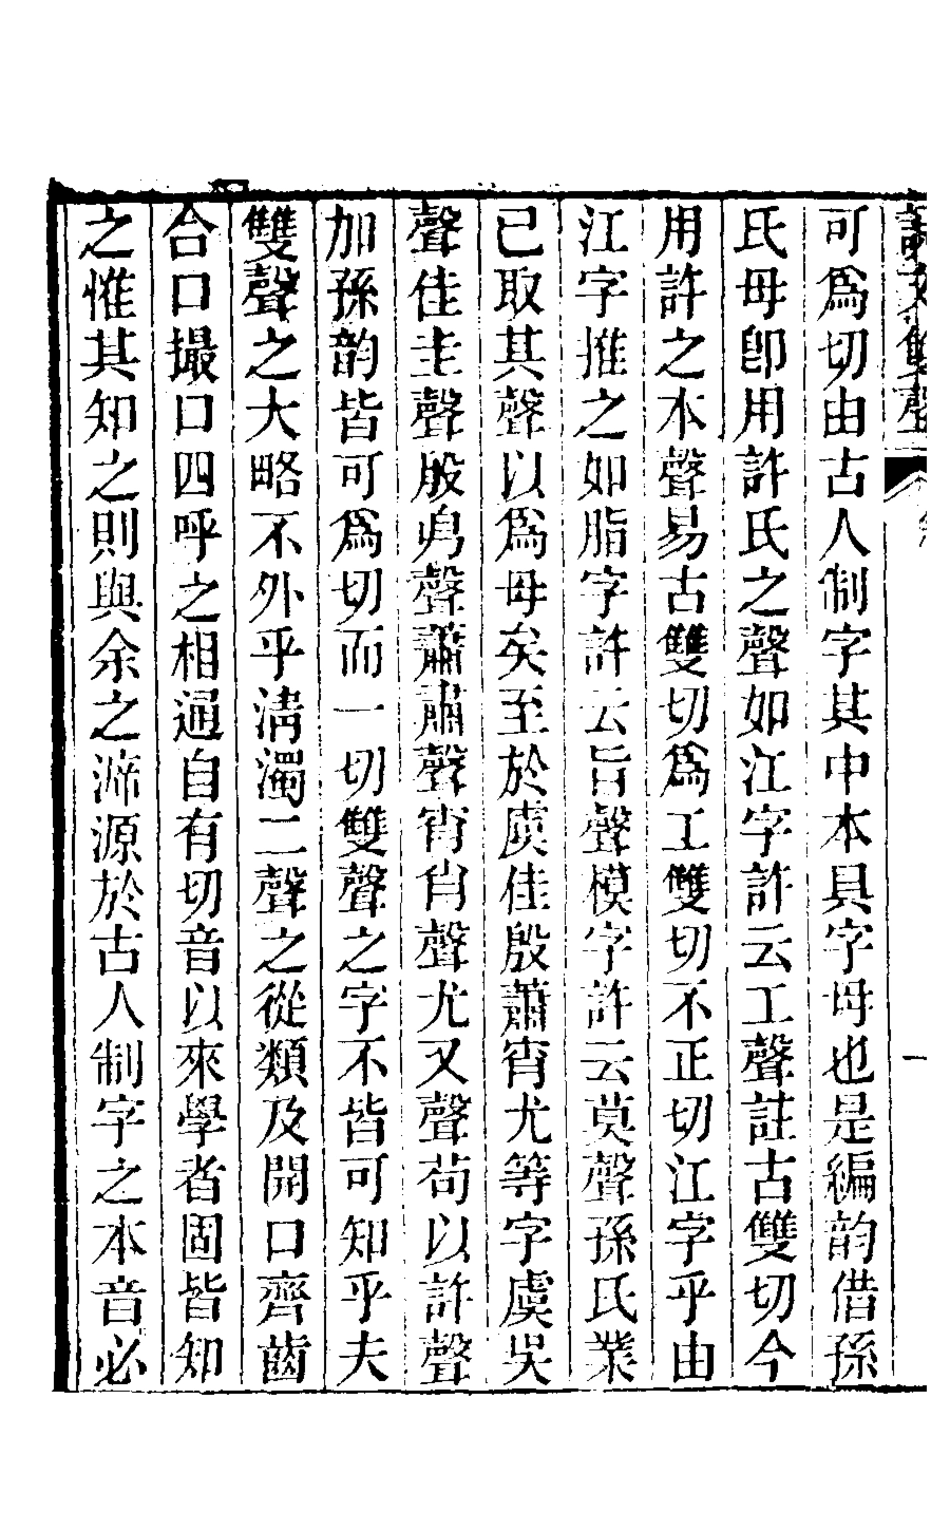 說文雙聲
一
可爲切由古人制字其中本具字母也是編韵借孫
氏母卽用許氏之聲如江字許云工聲註古雙切今
用許之本聲易古雙切爲工雙切不正切江字乎由
江字推之如脂字許云旨聲模字許云莫聲孫氏業
已取其聲以爲母矣至於虞佳殷蕭宵尤等字虞吳
聲佳圭聲殷㐆聲蕭肅聲宵肖聲尤又聲苟以許聲
加孫韵皆可爲切而一切雙聲之字不皆可知乎夫
雙聲之大略不外乎淸濁二聲之從類及開口齊齒
合口撮口四呼之相通自有切音以來學者固皆知
之惟其知之則與余之溯源於古人制字之本音必